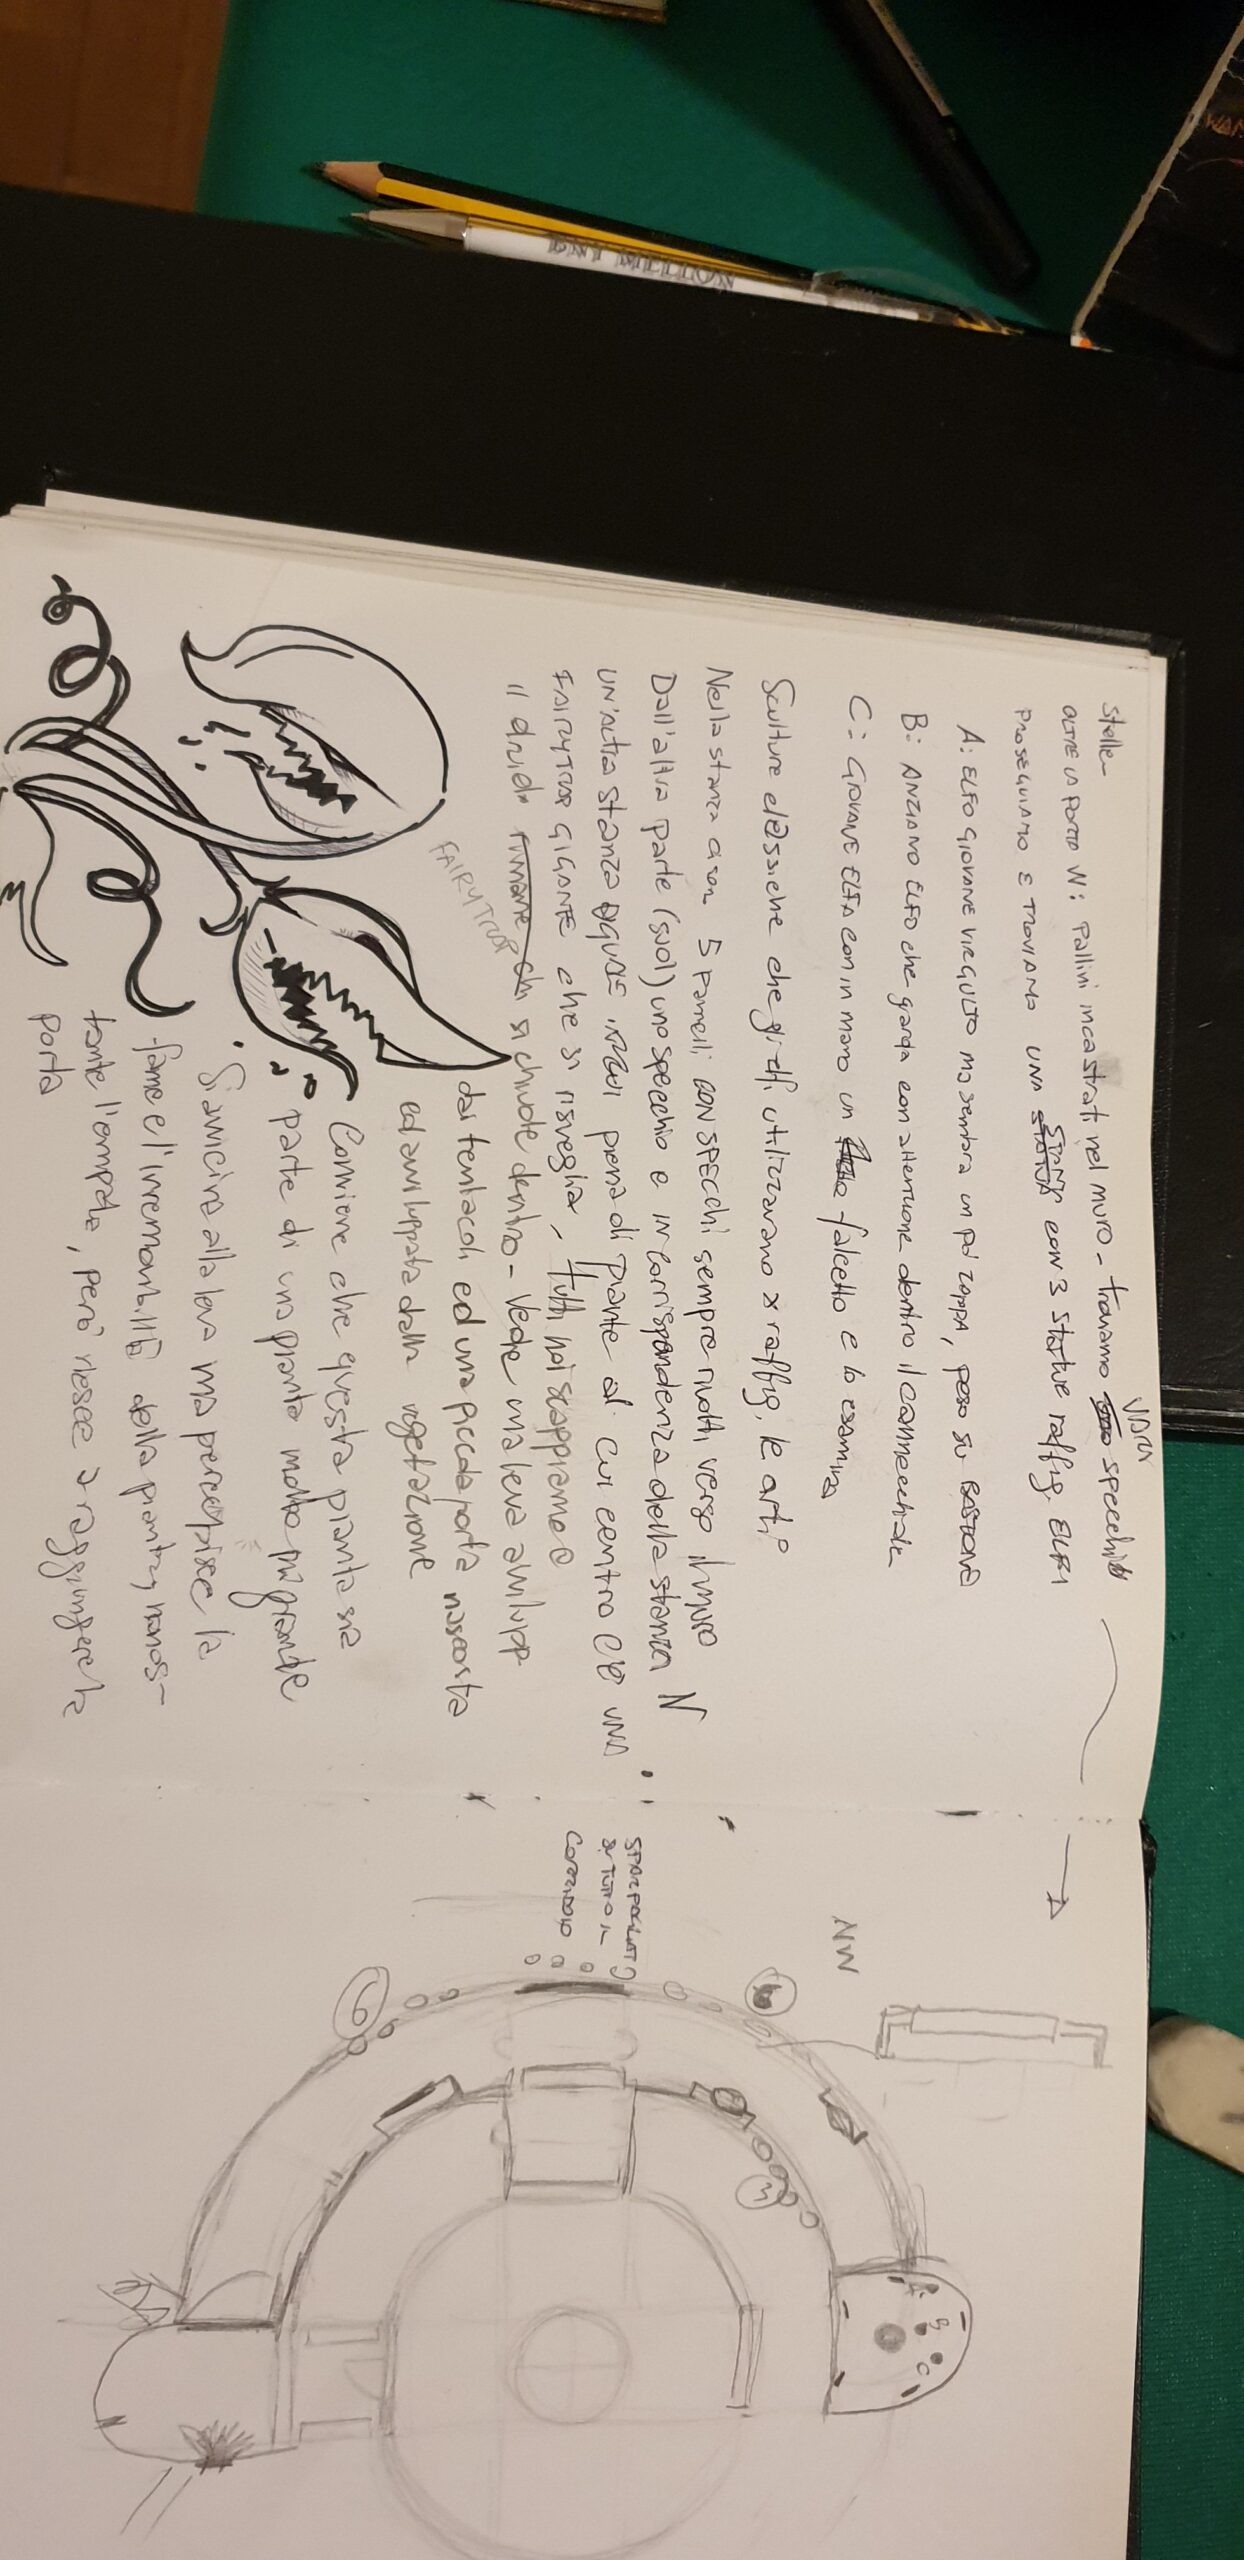 stelle-
OLTRE LA PORTA W: pallini incastrati nel muro - troviamo VARI specchi
PROSEGUIAMO E TROVIAMO UNA STANZA con 3 statue raffig. ELFI
A: ELFO GIOVANE VIRGULTO ma sembra un po' zoppo, poso su BASTONE
B: ANZIANO ELFO che guarda con attenzione dentro il cannocchiale
C: GIOVANE ELFA con in mano un falcetto e lo esamina
Sculture classiche che gli elfi utilizzavano x raffig. le arti
Nella stanza ci son 5 pannelli CON SPECCHI sempre rivolti verso il muro
Dall'altra parte (sud) uno specchio e in corrispondenza della stanza N
UN'ALTRA stanza piena di piante al cui centro c'è UNA
FAIRYTRAP GIGANTE che si risveglia, tutti noi scappiamo e
il druido si chiude dentro - Vede una leva avilupp
dai tentacoli ed una piccola porta nascosta
ed aviluppata dalla vegetazione
FAIRYTRAP
Conviene che questa pianta sia
parte di una pianta molto più grande
Si avvicina alla leva ma percepisce la
fame e l'irremovibilità della pianta, nonos-
tante l'empatia, però riesce a raggiungere la
porta
NW
SPARPAGLIATI
SU TUTTO IL
CORRIDOIO
A
B
C
ONE MILLION